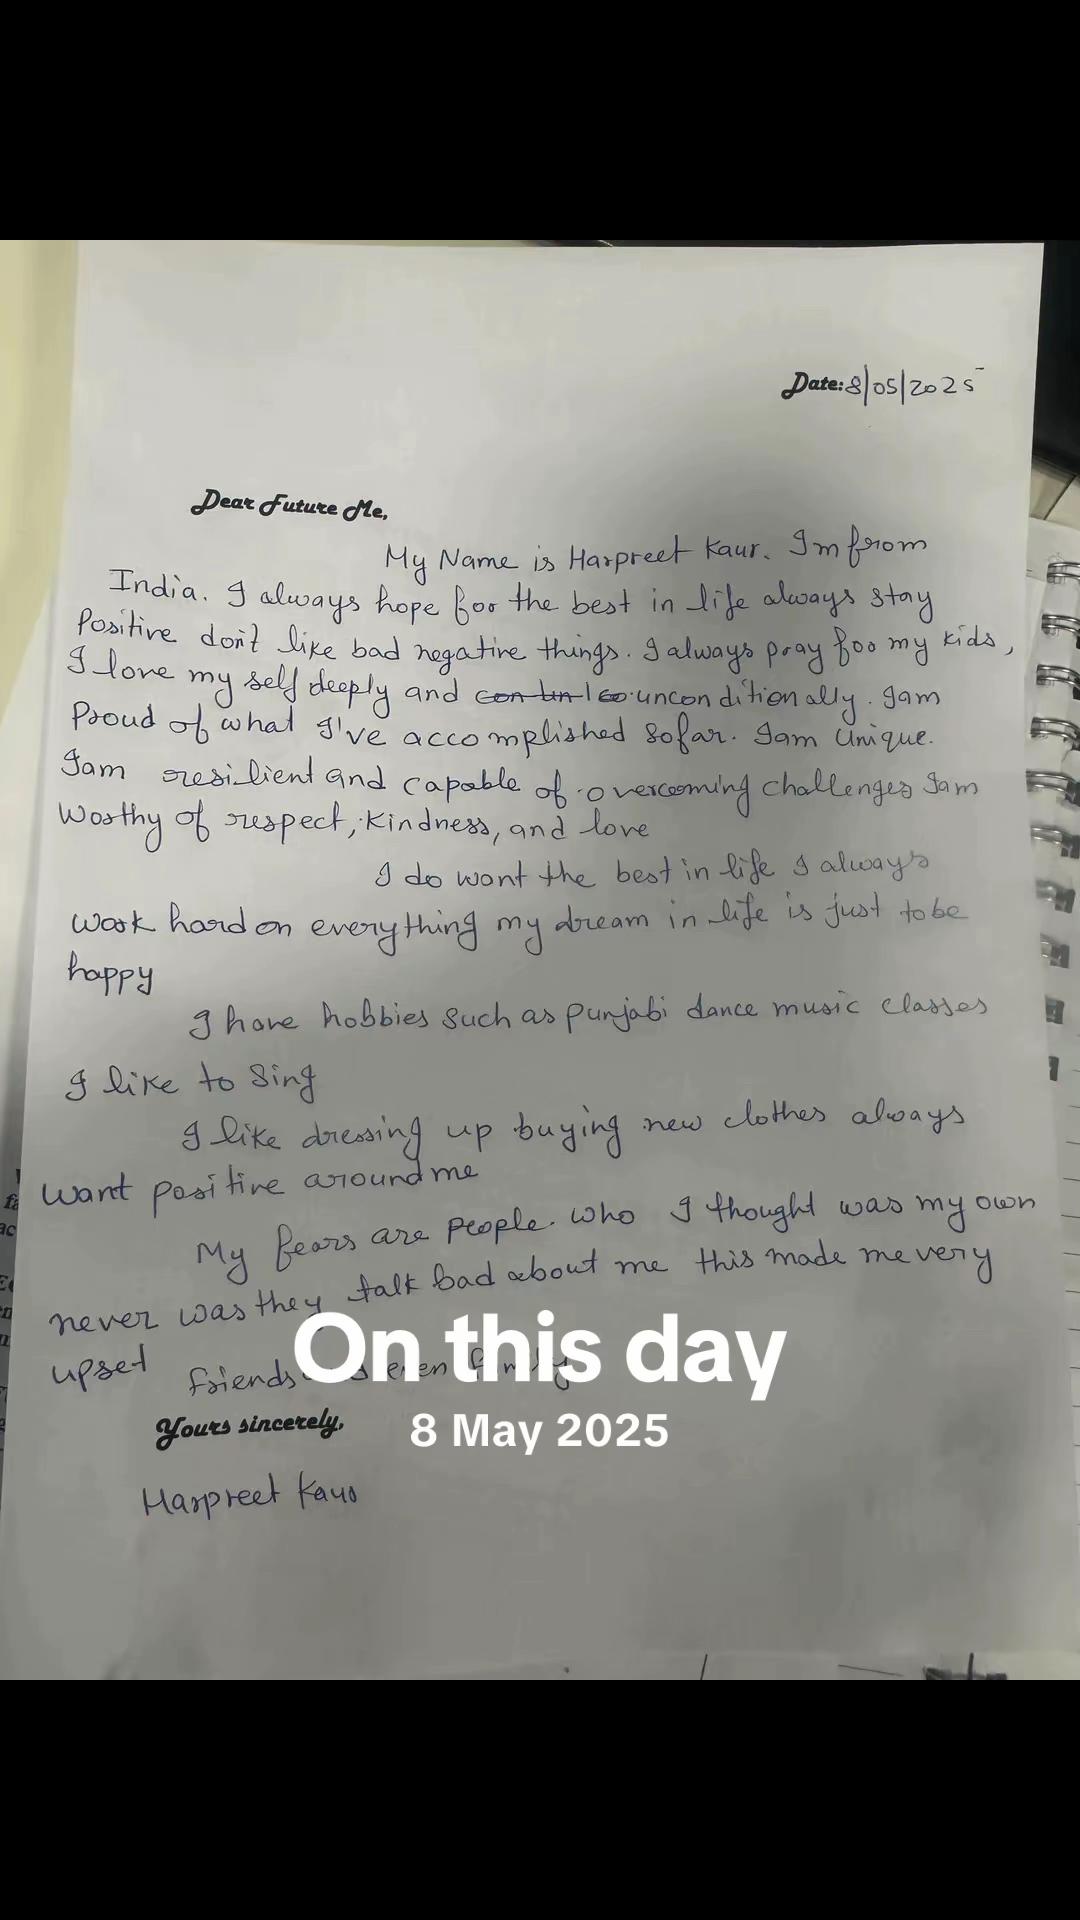 Date: 8/05/2025
Dear Future Me,
My Name is Harpreet Kaur. I'm from
India. I always hope for the best in life always stay
Positive don't like bad negative things. I always pray for my kids,
I love my self deeply and unconditionally. Iam
Proud of what I've accomplished sofar. Iam Unique.
Iam resilient and capable of overcoming challenges Iam
Worthy of respect, kindness, and love
I do want the best in life I always
Work hard on everything my dream in life is just to be
happy
I have hobbies such as punjabi dance music classes
I like to Sing
I like dressing up buying new clothes always
want positive around me
My fears are people who I thought was my own
never was they talk bad about me this made me very
upset friends even family
On this day
8 May 2025
Yours sincerely,
Harpreet Kaur